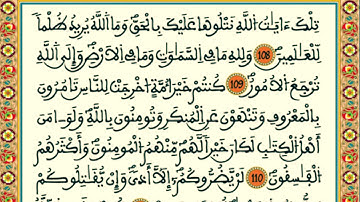 تِلْكَ ءَايَٰتُ اللَّهِ نَتْلُوهَا عَلَيْكَ بِالْحَقِّ وَمَا اللَّهُ يُرِيدُ ظُلْمًا
لِّلْعَٰلَمِينَ 108 وَلِلَّهِ مَا فِي السَّمَٰوَٰتِ وَمَا فِي الْأَرْضِ وَإِلَى اللَّهِ
تُرْجَعُ الْأُمُورُ 109 كُنتُمْ خَيْرَ أُمَّةٍ أُخْرِجَتْ لِلنَّاسِ تَأْمُرُونَ
بِالْمَعْرُوفِ وَتَنْهَوْنَ عَنِ الْمُنكَرِ وَتُؤْمِنُونَ بِاللَّهِ وَلَوْ ءَامَنَ
أَهْلُ الْكِتَٰبِ لَكَانَ خَيْرًا لَّهُم مِّنْهُمُ الْمُؤْمِنُونَ وَأَكْثَرُهُمُ
الْفَٰسِقُونَ 110 لَن يَضُرُّوكُمْ إِلَّا أَذًى وَإِن يُقَٰتِلُوكُمْ